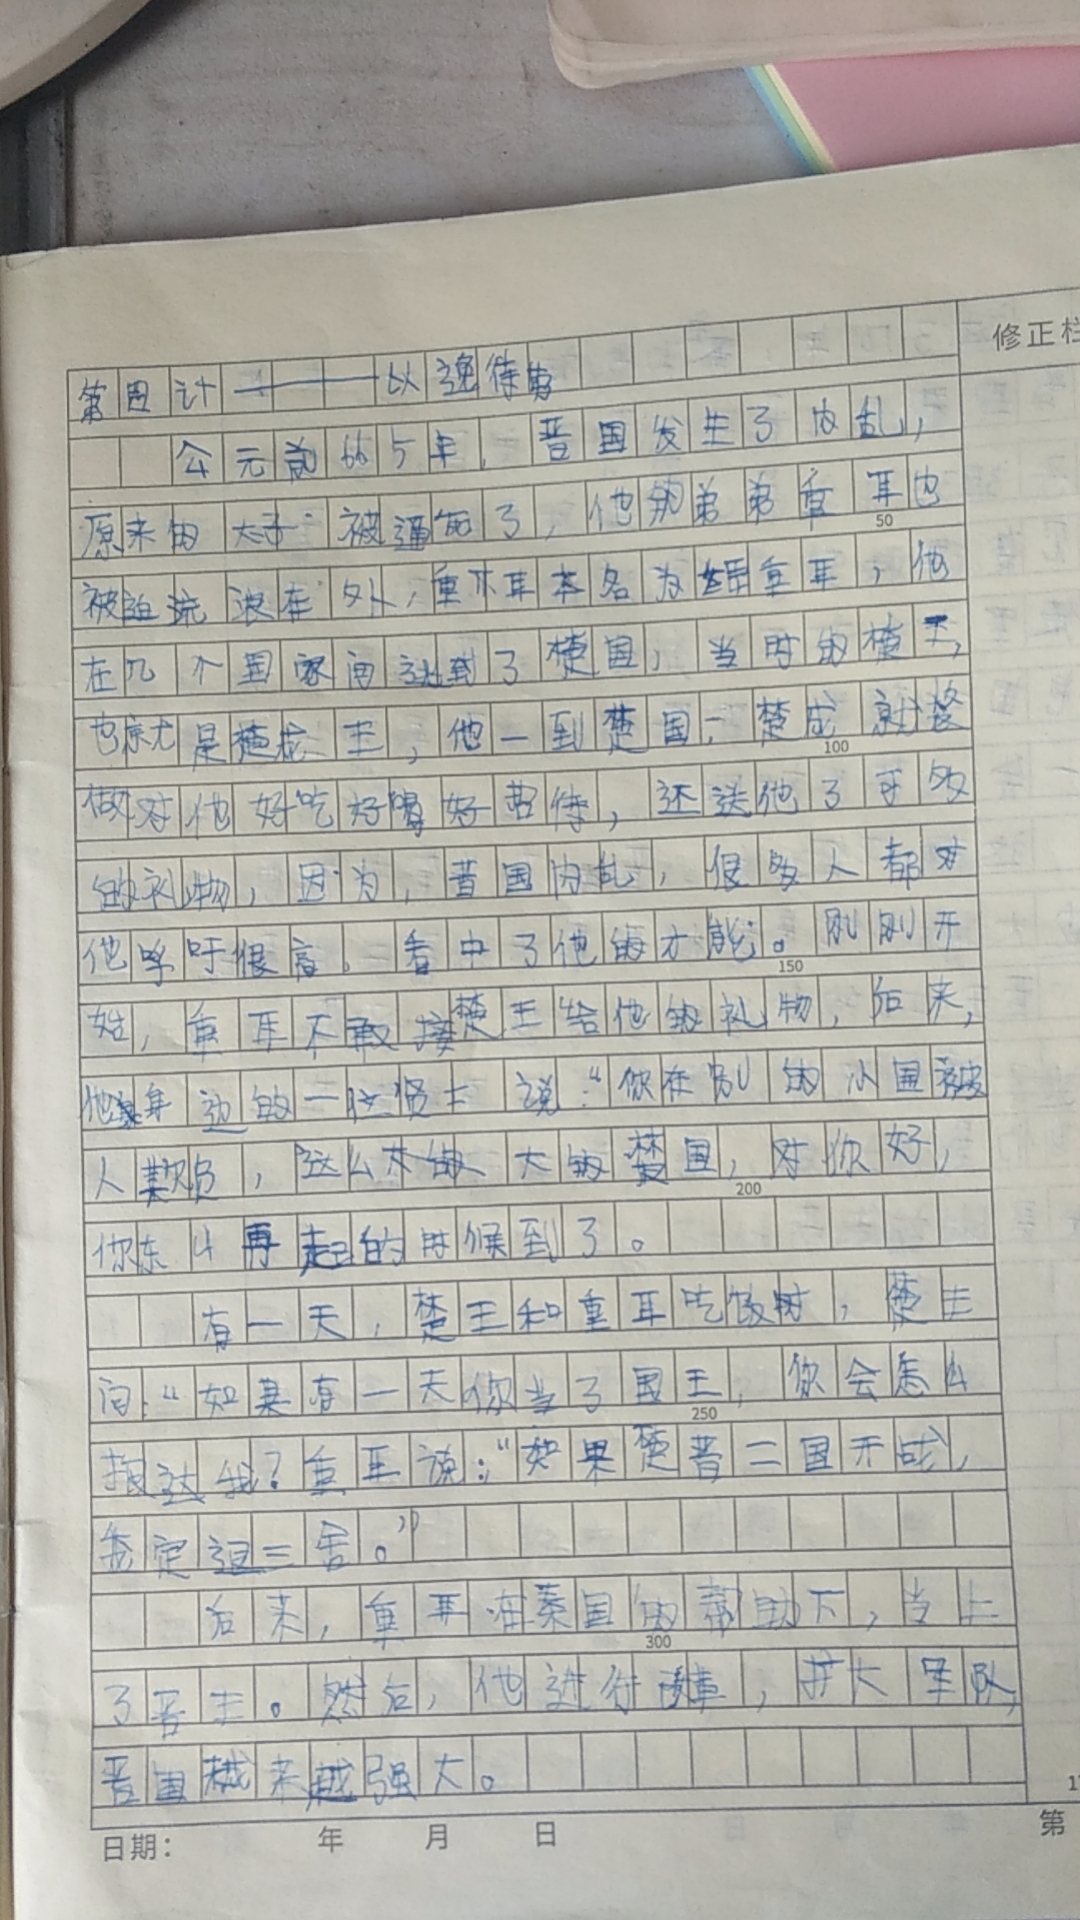 修正栏
第四计———以逸待劳
公元前665年，晋国发生了内乱，
原来的太子被逼死了，他的弟弟重耳也
被迫流浪在外，重耳本名为重耳，他
在几个国家间达到了楚国，当时的楚王，
也就是楚成王，他一到楚国，楚成就
做对他好吃好喝好招待，还送他了许多
的礼物，因为，晋国内乱，很多人都对
他呼吁很高，看中了他的才能。刚刚开
始，重耳不敢接楚王给他的礼物，后来，
他身边的一位贤士说："你在别的小国被
人欺负，这么大的楚国，对你好，
你东山再起的时候到了。
有一天，楚王和重耳吃饭时，楚王
问："如果有一天你当了国王，你会怎么
报达我？重耳说："如果楚晋二国开战，
我定退三舍。"
后来，重耳在秦国的帮助下，当上
了晋王。然后，他进行改革，扩大军队，
晋国越来越强大。
50
100
150
200
250
300
日期： 年 月 日
第